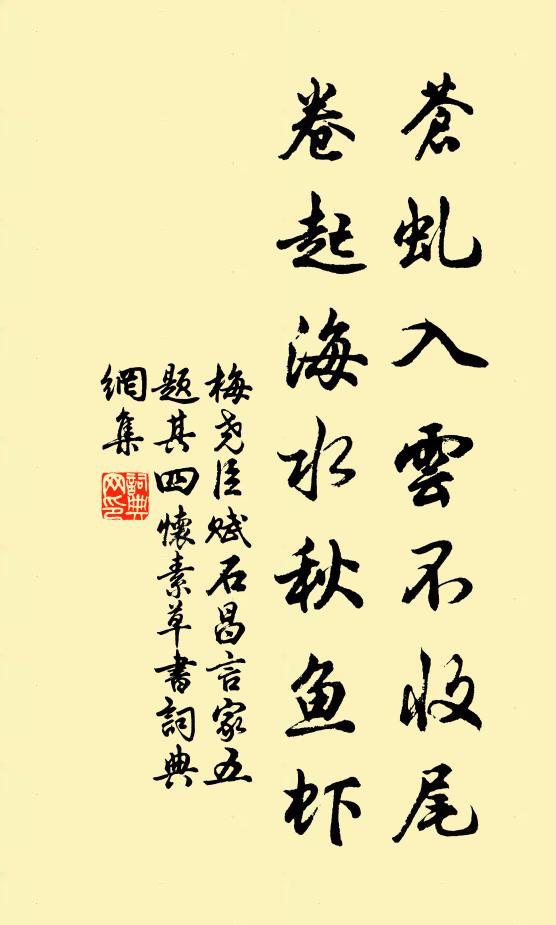 蒼虬入雲不收尾
卷起海水秋鱼虾
梅尧臣赋石昌言家五
题其四懷素草書詞典
網集
詞典
网印